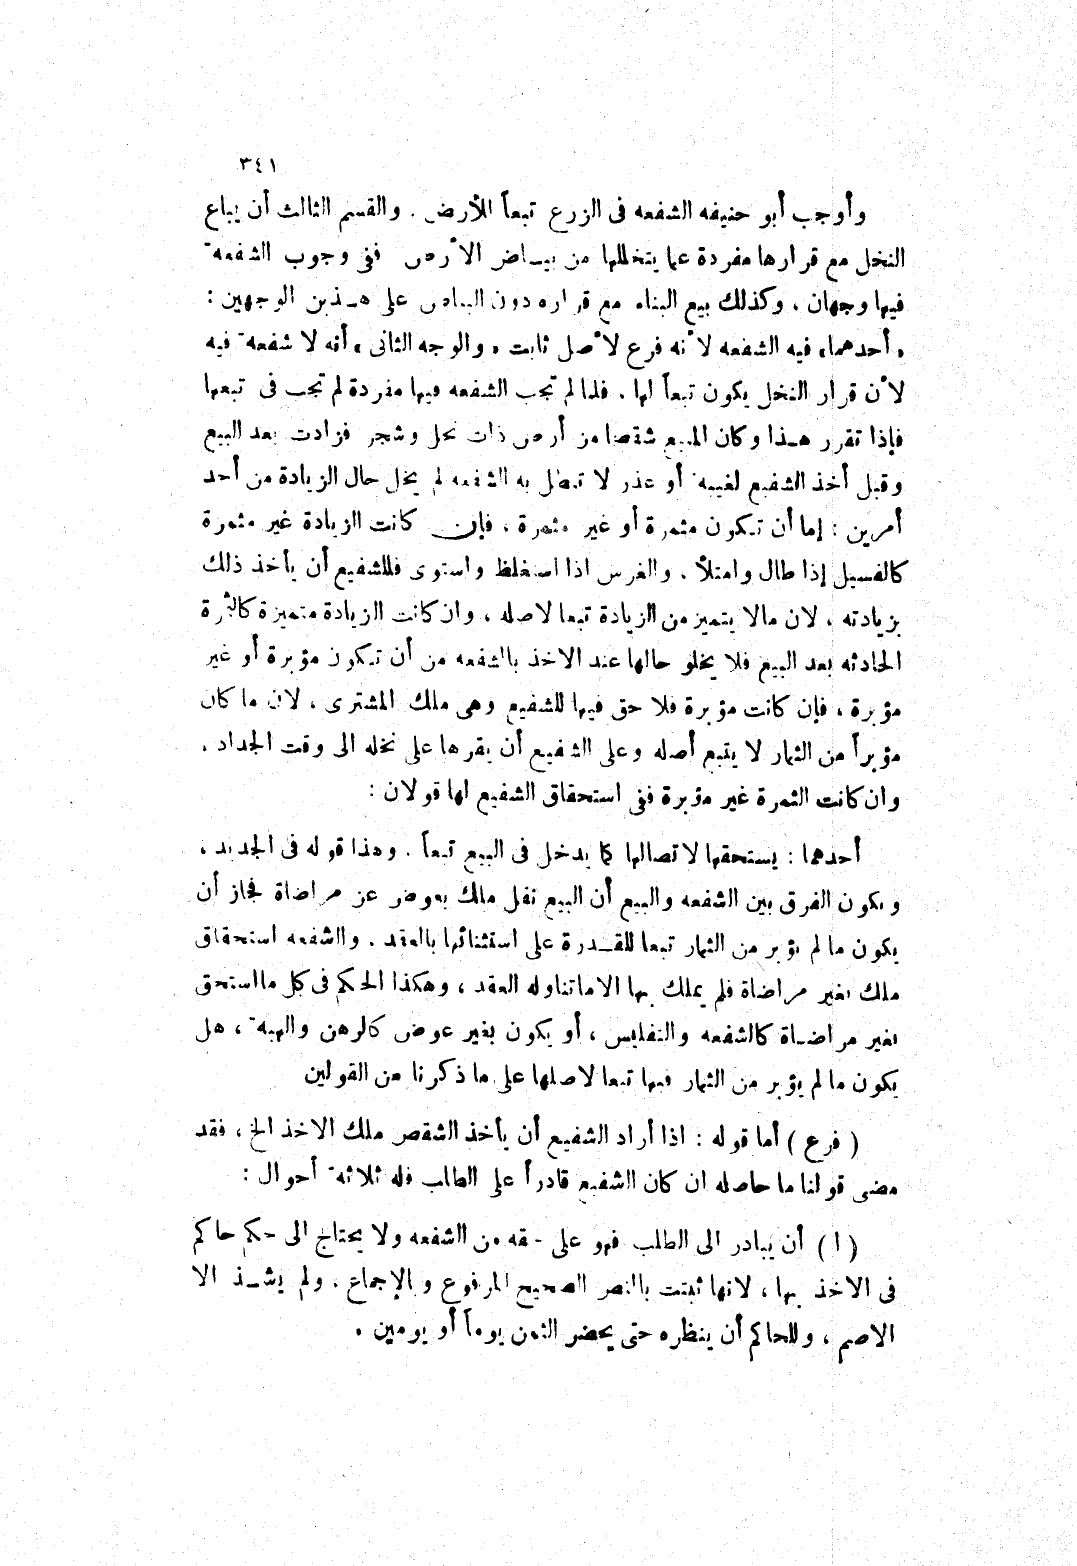 ٣٤١
وأوجب أبو حنيفه الشفعه فى الزرع تبعاً للأرض . والقسم الثالث أن يباع
النخل مع قرارها مفردة عما يتخللها من بيـاض الأرض ففى وجوب الشفعة
فيها وجهان ، وكذلك بيع البناء مع قراره دون البياض على هـذين الوجهين :
« أحدهما » فيه الشفعه لأنه فرع لأصل ثابت « والوجه الثانى » أنه لا شفعة فيه
لأن قرار النخل يكون تبعاً لها . فلما لم تجب الشفعه فيها مفردة لم تجب فى تبعها
فإذا تقرر هـذا وكان المبيع شقصا من أرض ذات نخل وشجر فزادت بعد البيع
وقبل أخذ الشفيع لغيبة أو عذر لا تبطل به الشفعه لم يخل حال الزيادة من أحد
أمرين : إما أن تـكون مثمرة أو غير مثمرة ، فإن كانت الزيادة غير مثمرة
كالفسيل إذا طال وامتلأ . والغرس اذا استغلظ واستوى فللشفيع أن يأخذ ذلك
بزيادته ، لان مالا يتميز من الزيادة تبعا لاصله ، وان كانت الزيادة متميزة كالثمرة
الحادثه بعد البيع فلا يخلو حالها عند الاخذ بالشفعه من أن تـكون مؤبرة أو غير
مؤبرة ، فإن كانت مؤبرة فلا حق فيها للشفيع وهى ملك المشترى ، لان ما كان
مؤبراً من الثمار لا يتبع أصله وعلى الشفيع أن يقرها على نخله الى وقت الجداد .
وان كانت الثمرة غير مؤبرة ففى استحقاق الشفيع لها قولان :
أحدهما : يستحقها لاتصالها كما يدخل فى البيع تبعاً . وهذا قوله فى الجديد ،
ويكون الفرق بين الشفعه والبيع أن البيع نقل ملك بعوض عن مراضاة فجاز أن
يكون ما لم يؤبر من الثمار تبعا للقـدرة على استثنائها بالعقد . والشفعه استحقاق
ملك بغير مراضاة فلم يملك بها الا ما تناوله العقد ، وهكذا الحـكم فى كل ما استحق
بغير مراضـاة كالشفعه والتفليس ، أو يكون بغير عوض كالرهن والهبة ، هل
يكون ما لم يؤبر من الثمار فيها تبعا لاصلها على ما ذكرنا من القولين
( فرع ) أما قوله : اذا أراد الشفيع أن يأخذ الشقص ملك الاخذ الخ ، فقد
مضى قولنا ما حاصله ان كان الشفيع قادراً على الطلب فله ثلاثة أحوال :
( ا ) أن يبادر الى الطلب فهو على حقه من الشفعه ولا يحتاج الى حكم حاكم
فى الاخذ بها ، لانها ثبتت بالنص الصحيح المرفوع والإجماع . ولم يشـذ الا
الاصم ، وللحاكم أن ينظره حتى يحضر الثمن يوماً أو يومين .